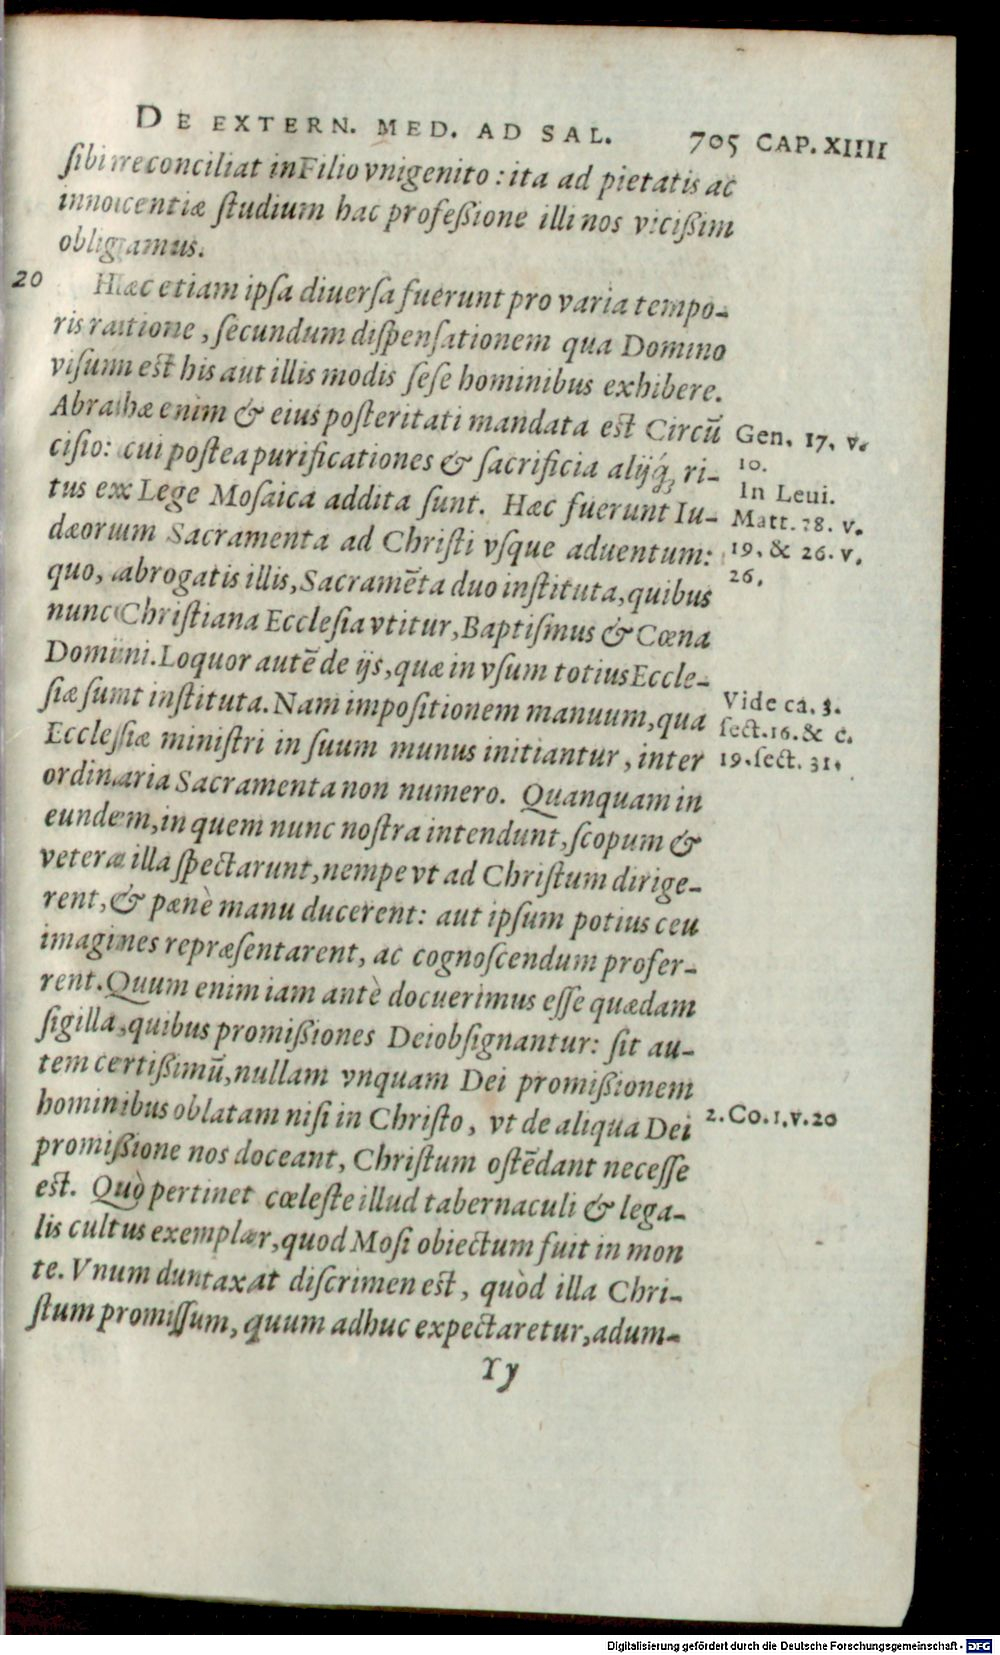 DE EXTERN. MED. AD SAL. 705 CAP. XIIII
sibi reconciliat in Filio vnigenito: ita ad pietatis ac
innocentiæ studium hac profeßione illi nos vicißim
obligamus.
20 Hæc etiam ipsa diuersa fuerunt pro varia tempo-
ris ratione, secundum dispensationem qua Domino
visum est his aut illis modis sese hominibus exhibere.
Abrahæ enim & eius posteritati mandata est Circũ
cisio: cui postea purificationes & sacrificia alijq́; ri-
tus ex Lege Mosaica addita sunt. Hæc fuerunt Iu-
dæorum Sacramenta ad Christi vsque aduentum:
quo, abrogatis illis, Sacramẽta duo instituta, quibus
nunc Christiana Ecclesia vtitur, Baptismus & Cœna
Domini. Loquor autẽ de ijs, quæ in vsum totius Eccle-
siæ sunt instituta. Nam impositionem manuum, qua
Ecclesiæ ministri in suum munus initiantur, inter
ordinaria Sacramenta non numero. Quanquam in
eundem, in quem nunc nostra intendunt, scopum &
vetera illa spectarunt, nempe vt ad Christum dirige-
rent, & pænè manu ducerent: aut ipsum potius ceu
imagines repræsentarent, ac cognoscendum profer-
rent. Quum enim iam antè docuerimus esse quædam
sigilla, quibus promißiones Dei obsignantur: sit au-
tem certißimũ, nullam vnquam Dei promißionem
hominibus oblatam nisi in Christo, vt de aliqua Dei
promißione nos doceant, Christum ostẽdant necesse
est. Quò pertinet cœleste illud tabernaculi & lega-
lis cultus exemplar, quod Mosi obiectum fuit in mon
te. Vnum duntaxat discrimen est, quòd illa Chri-
stum promissum, quum adhuc expectaretur, adum-
Yy
Gen. 17. v.
10.
In Leui.
Matt. 28. v.
19. & 26. v.
26.
Vide ca. 3.
sect. 16. & c.
19. sect. 31.
2. Co. 1. v. 20
Digitalisierung gefördert durch die Deutsche Forschungsgemeinschaft - DFG